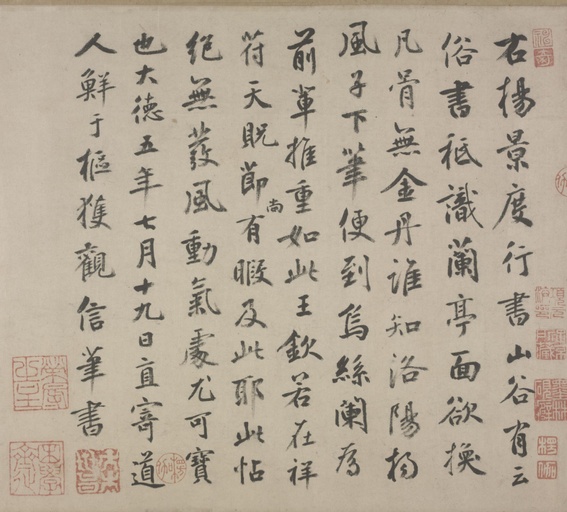 右楊景度行書山谷有云
俗書秪識蘭亭面欲換
凡骨無金丹誰知洛陽楊
風子下筆便到烏絲闌為
前輩推重如此王欽若在祥
苻天貺節尚有暇及此耶此帖
絕無發風動氣處尤可寶
也大德五年七月十九日直寄道
人鮮于樞獲觀信筆書